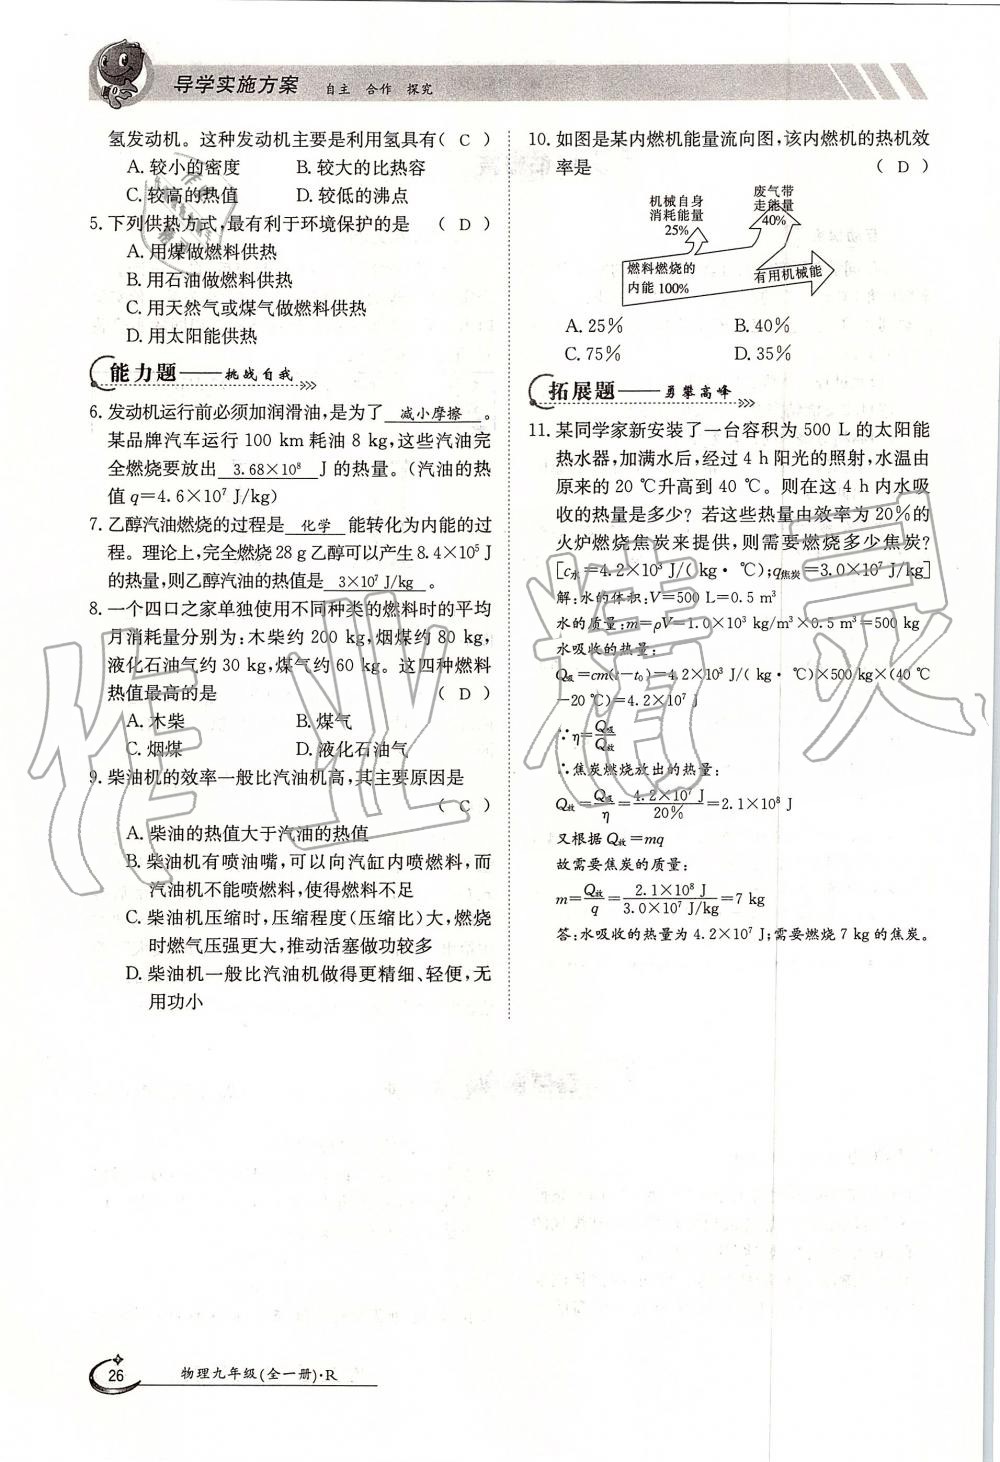 导学实施方案 自主 合作 探究
氢发动机。这种发动机主要是利用氢具有( C )
A. 较小的密度 B. 较大的比热容
C. 较高的热值 D. 较低的沸点
5. 下列供热方式,最有利于环境保护的是 ( D )
A. 用煤做燃料供热
B. 用石油做燃料供热
C. 用天然气或煤气做燃料供热
D. 用太阳能供热
能力题——挑战自我
6. 发动机运行前必须加润滑油,是为了 减小摩擦 。
某品牌汽车运行 100 km 耗油 8 kg,这些汽油完
全燃烧要放出 3.68×10⁸ J 的热量。(汽油的热
值 q=4.6×10⁷ J/kg)
7. 乙醇汽油燃烧的过程是 化学 能转化为内能的过
程。理论上,完全燃烧 28 g 乙醇可以产生 8.4×10⁵ J
的热量,则乙醇汽油的热值是 3×10⁷ J/kg 。
8. 一个四口之家单独使用不同种类的燃料时的平均
月消耗量分别为:木柴约 200 kg,烟煤约 80 kg,
液化石油气约 30 kg,煤气约 60 kg。这四种燃料
热值最高的是 ( D )
A. 木柴 B. 煤气
C. 烟煤 D. 液化石油气
9. 柴油机的效率一般比汽油机高,其主要原因是
( C )
A. 柴油的热值大于汽油的热值
B. 柴油机有喷油嘴,可以向汽缸内喷燃料,而
汽油机不能喷燃料,使得燃料不足
C. 柴油机压缩时,压缩程度(压缩比)大,燃烧
时燃气压强更大,推动活塞做功较多
D. 柴油机一般比汽油机做得更精细、轻便,无
用功小
10. 如图是某内燃机能量流向图,该内燃机的热机效
率是 ( D )
机械自身
消耗能量
25%
废气带
走能量
40%
燃料燃烧的
内能 100%
有用机械能
A. 25% B. 40%
C. 75% D. 35%
拓展题——勇攀高峰
11. 某同学家新安装了一台容积为 500 L 的太阳能
热水器,加满水后,经过 4 h 阳光的照射,水温由
原来的 20 ℃升高到 40 ℃。则在这 4 h 内水吸
收的热量是多少? 若这些热量由效率为 20%的
火炉燃烧焦炭来提供,则需要燃烧多少焦炭?
[c水=4.2×10³ J/(kg·℃);q焦炭=3.0×10⁷ J/kg]
解:水的体积:V=500 L=0.5 m³
水的质量:m=ρV=1.0×10³ kg/m³×0.5 m³=500 kg
水吸收的热量:
Q吸=cm(t-t₀)=4.2×10³ J/(kg·℃)×500 kg×(40 ℃
-20 ℃)=4.2×10⁷ J
∵η=Q吸/Q放
∴焦炭燃烧放出的热量:
Q放=Q吸/η=4.2×10⁷ J/20%=2.1×10⁸ J
又根据 Q放=mq
故需要焦炭的质量:
m=Q放/q=2.1×10⁸ J/3.0×10⁷ J/kg=7 kg
答:水吸收的热量为 4.2×10⁷ J;需要燃烧 7 kg 的焦炭。
作业精灵
26 物理九年级(全一册)·R